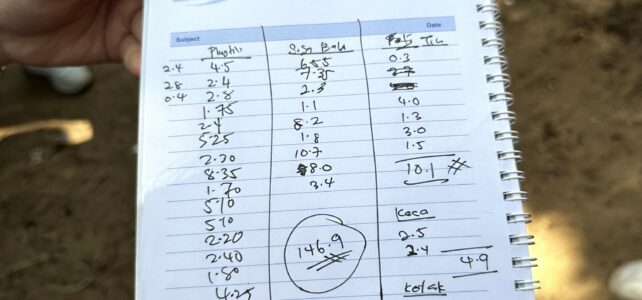 Subject Date
Plastik
2.4 4.5 6.55 0.3
28 2.4 7.35
0.4 2.8 2.3
1.75 1.1 4.0
2.4 8.2 1.3
525 1.8 3.0
2.20 10.7 1.5
8.35 8.0 10.1
1.70 3.4
510 Kaca
510 2.5
2.20 146.9 2.4
2.40 4.9
1.80 Kotak
4.25